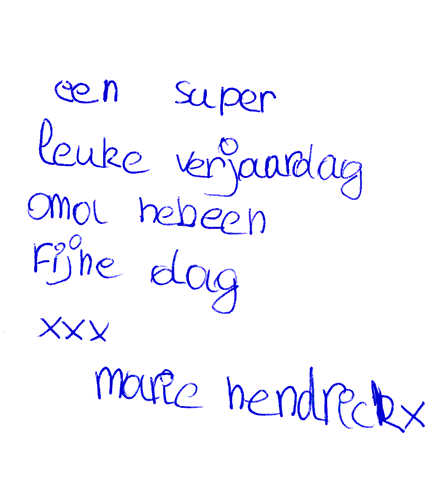 een super
leuke verjaardag
oma hebeen
Fijne dag
xxx
marie hendrickx